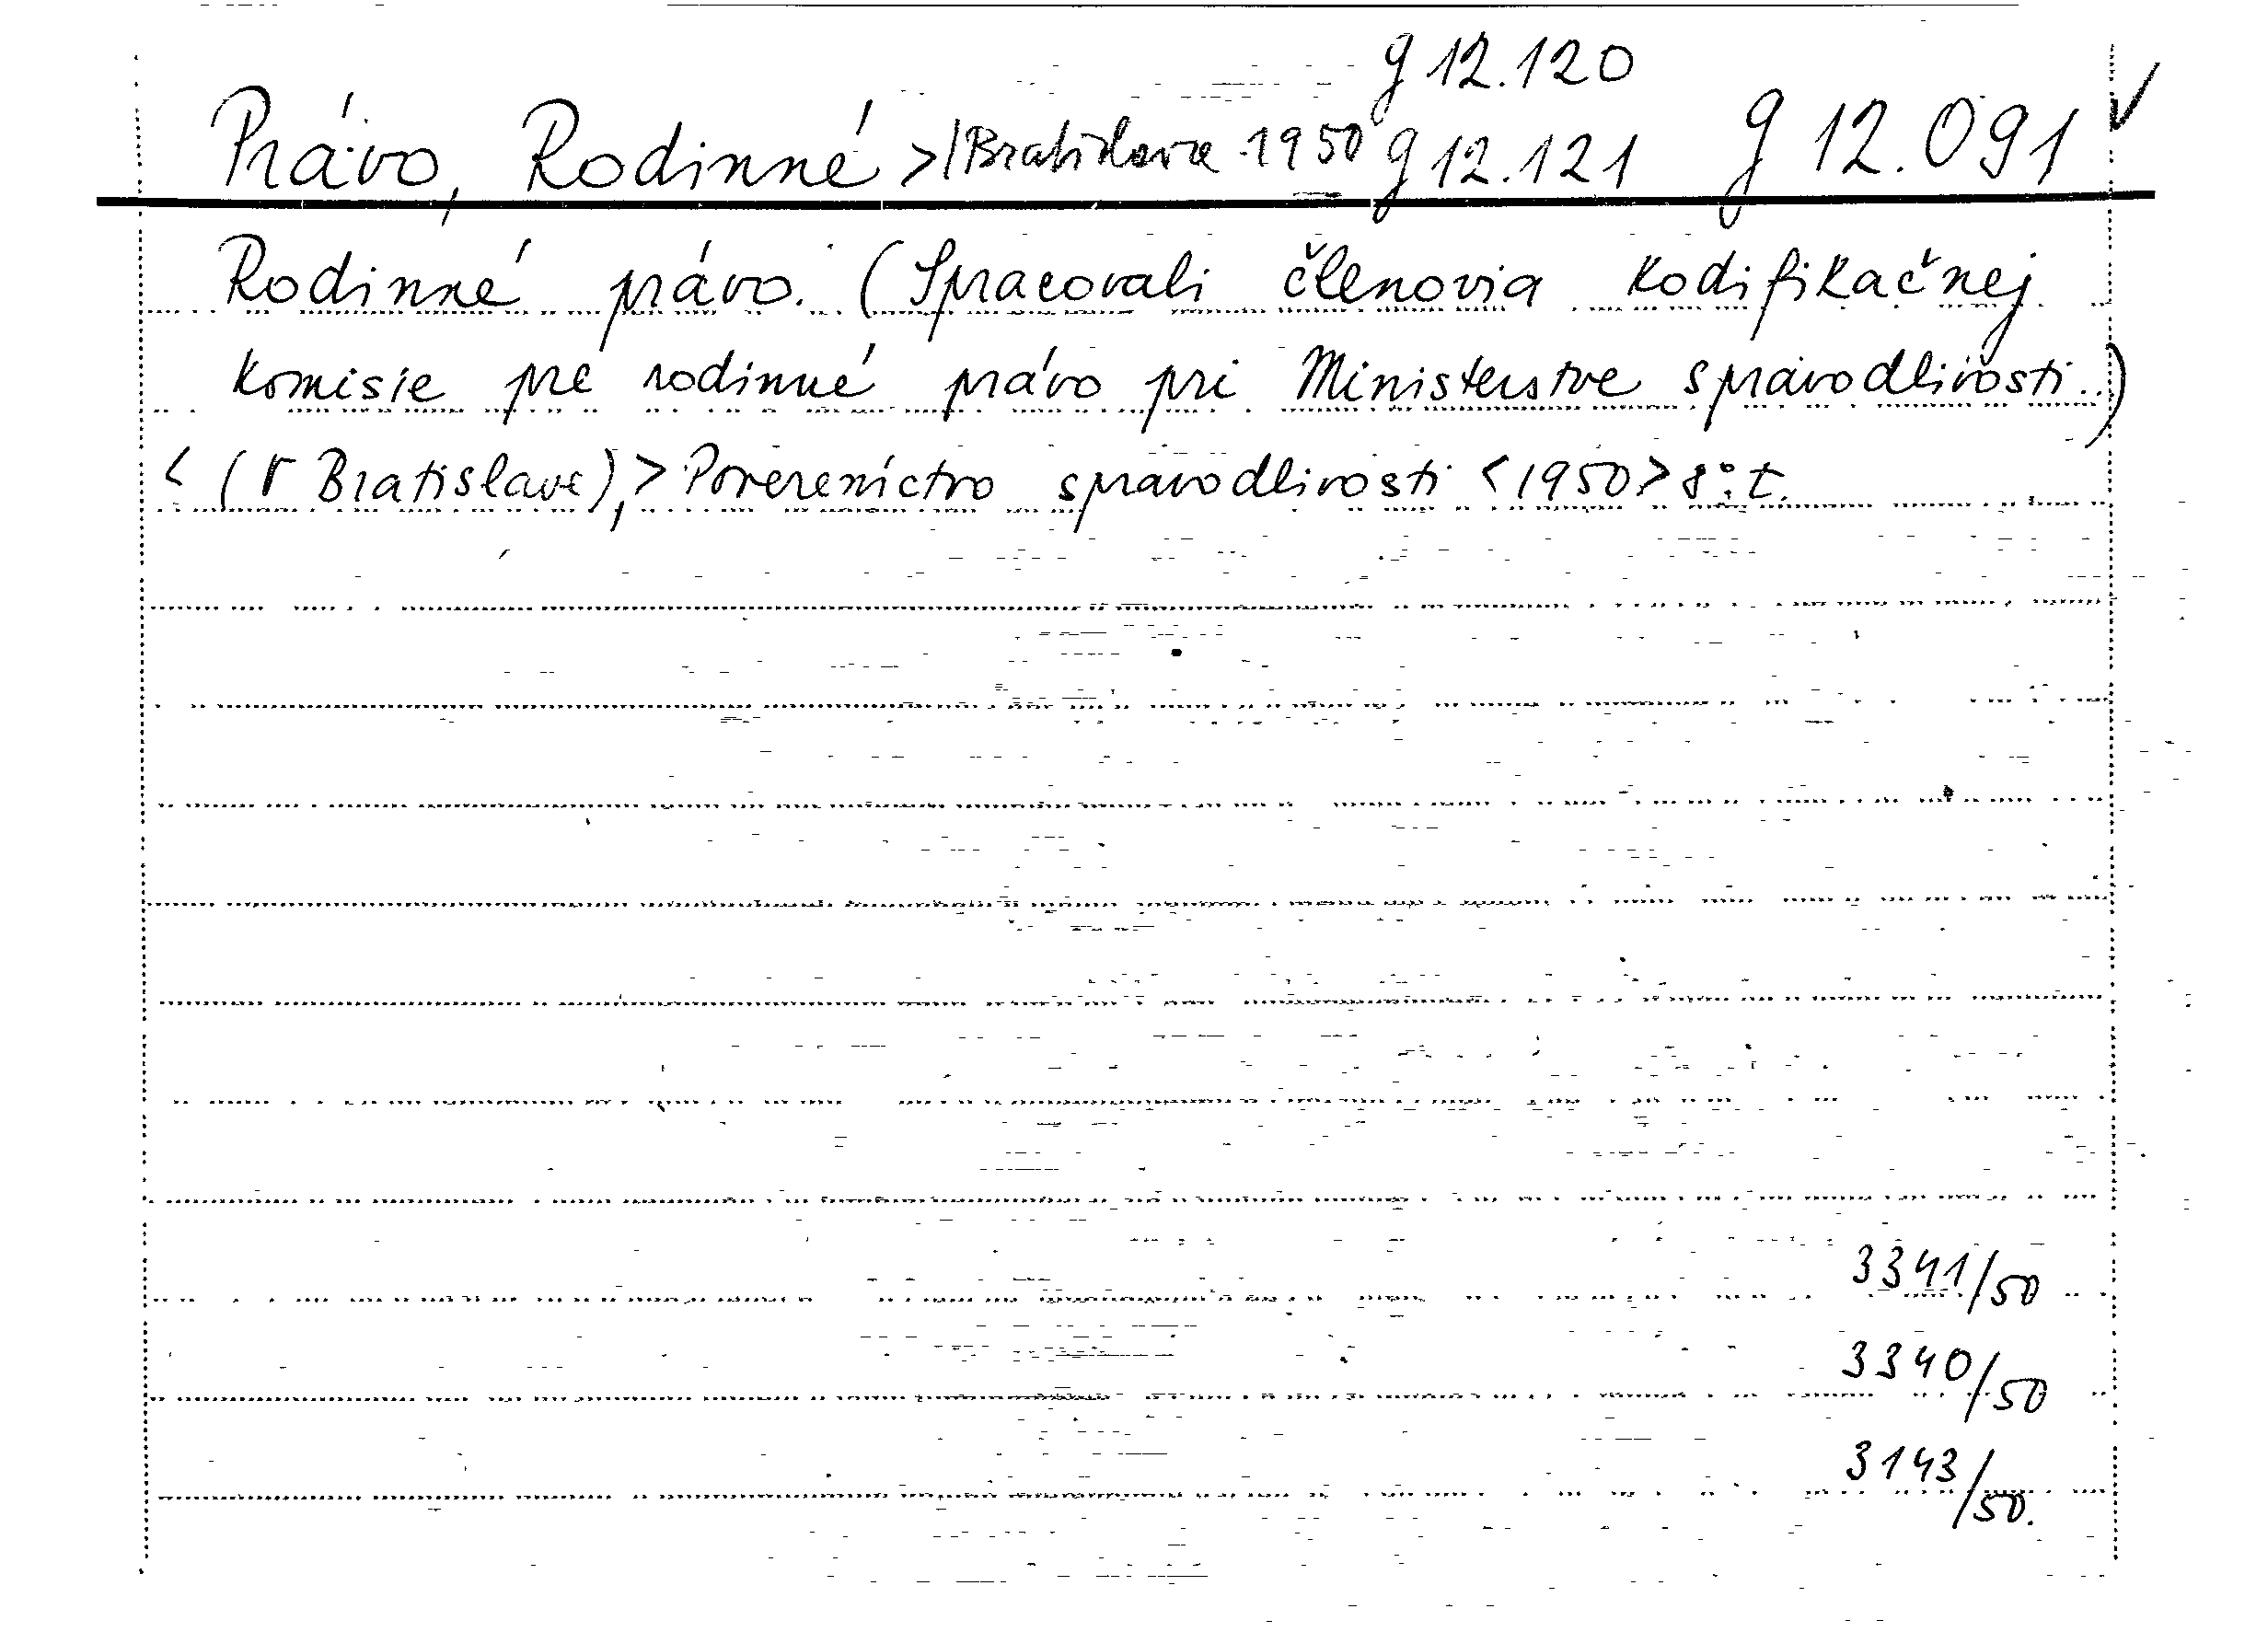 g 12.120
Právo, Rodinné >/Bratislava 1950 g 12.121 g 12.091 ✓
Rodinné právo. (Spracovali členovia kodifikačnej
komisie pre rodinné právo pri Ministerstve spravodlivosti.)
< (V Bratislave), > Povereníctvo spravodlivosti <1950> 8°. t.
3341/50
3340/50
3143/50.